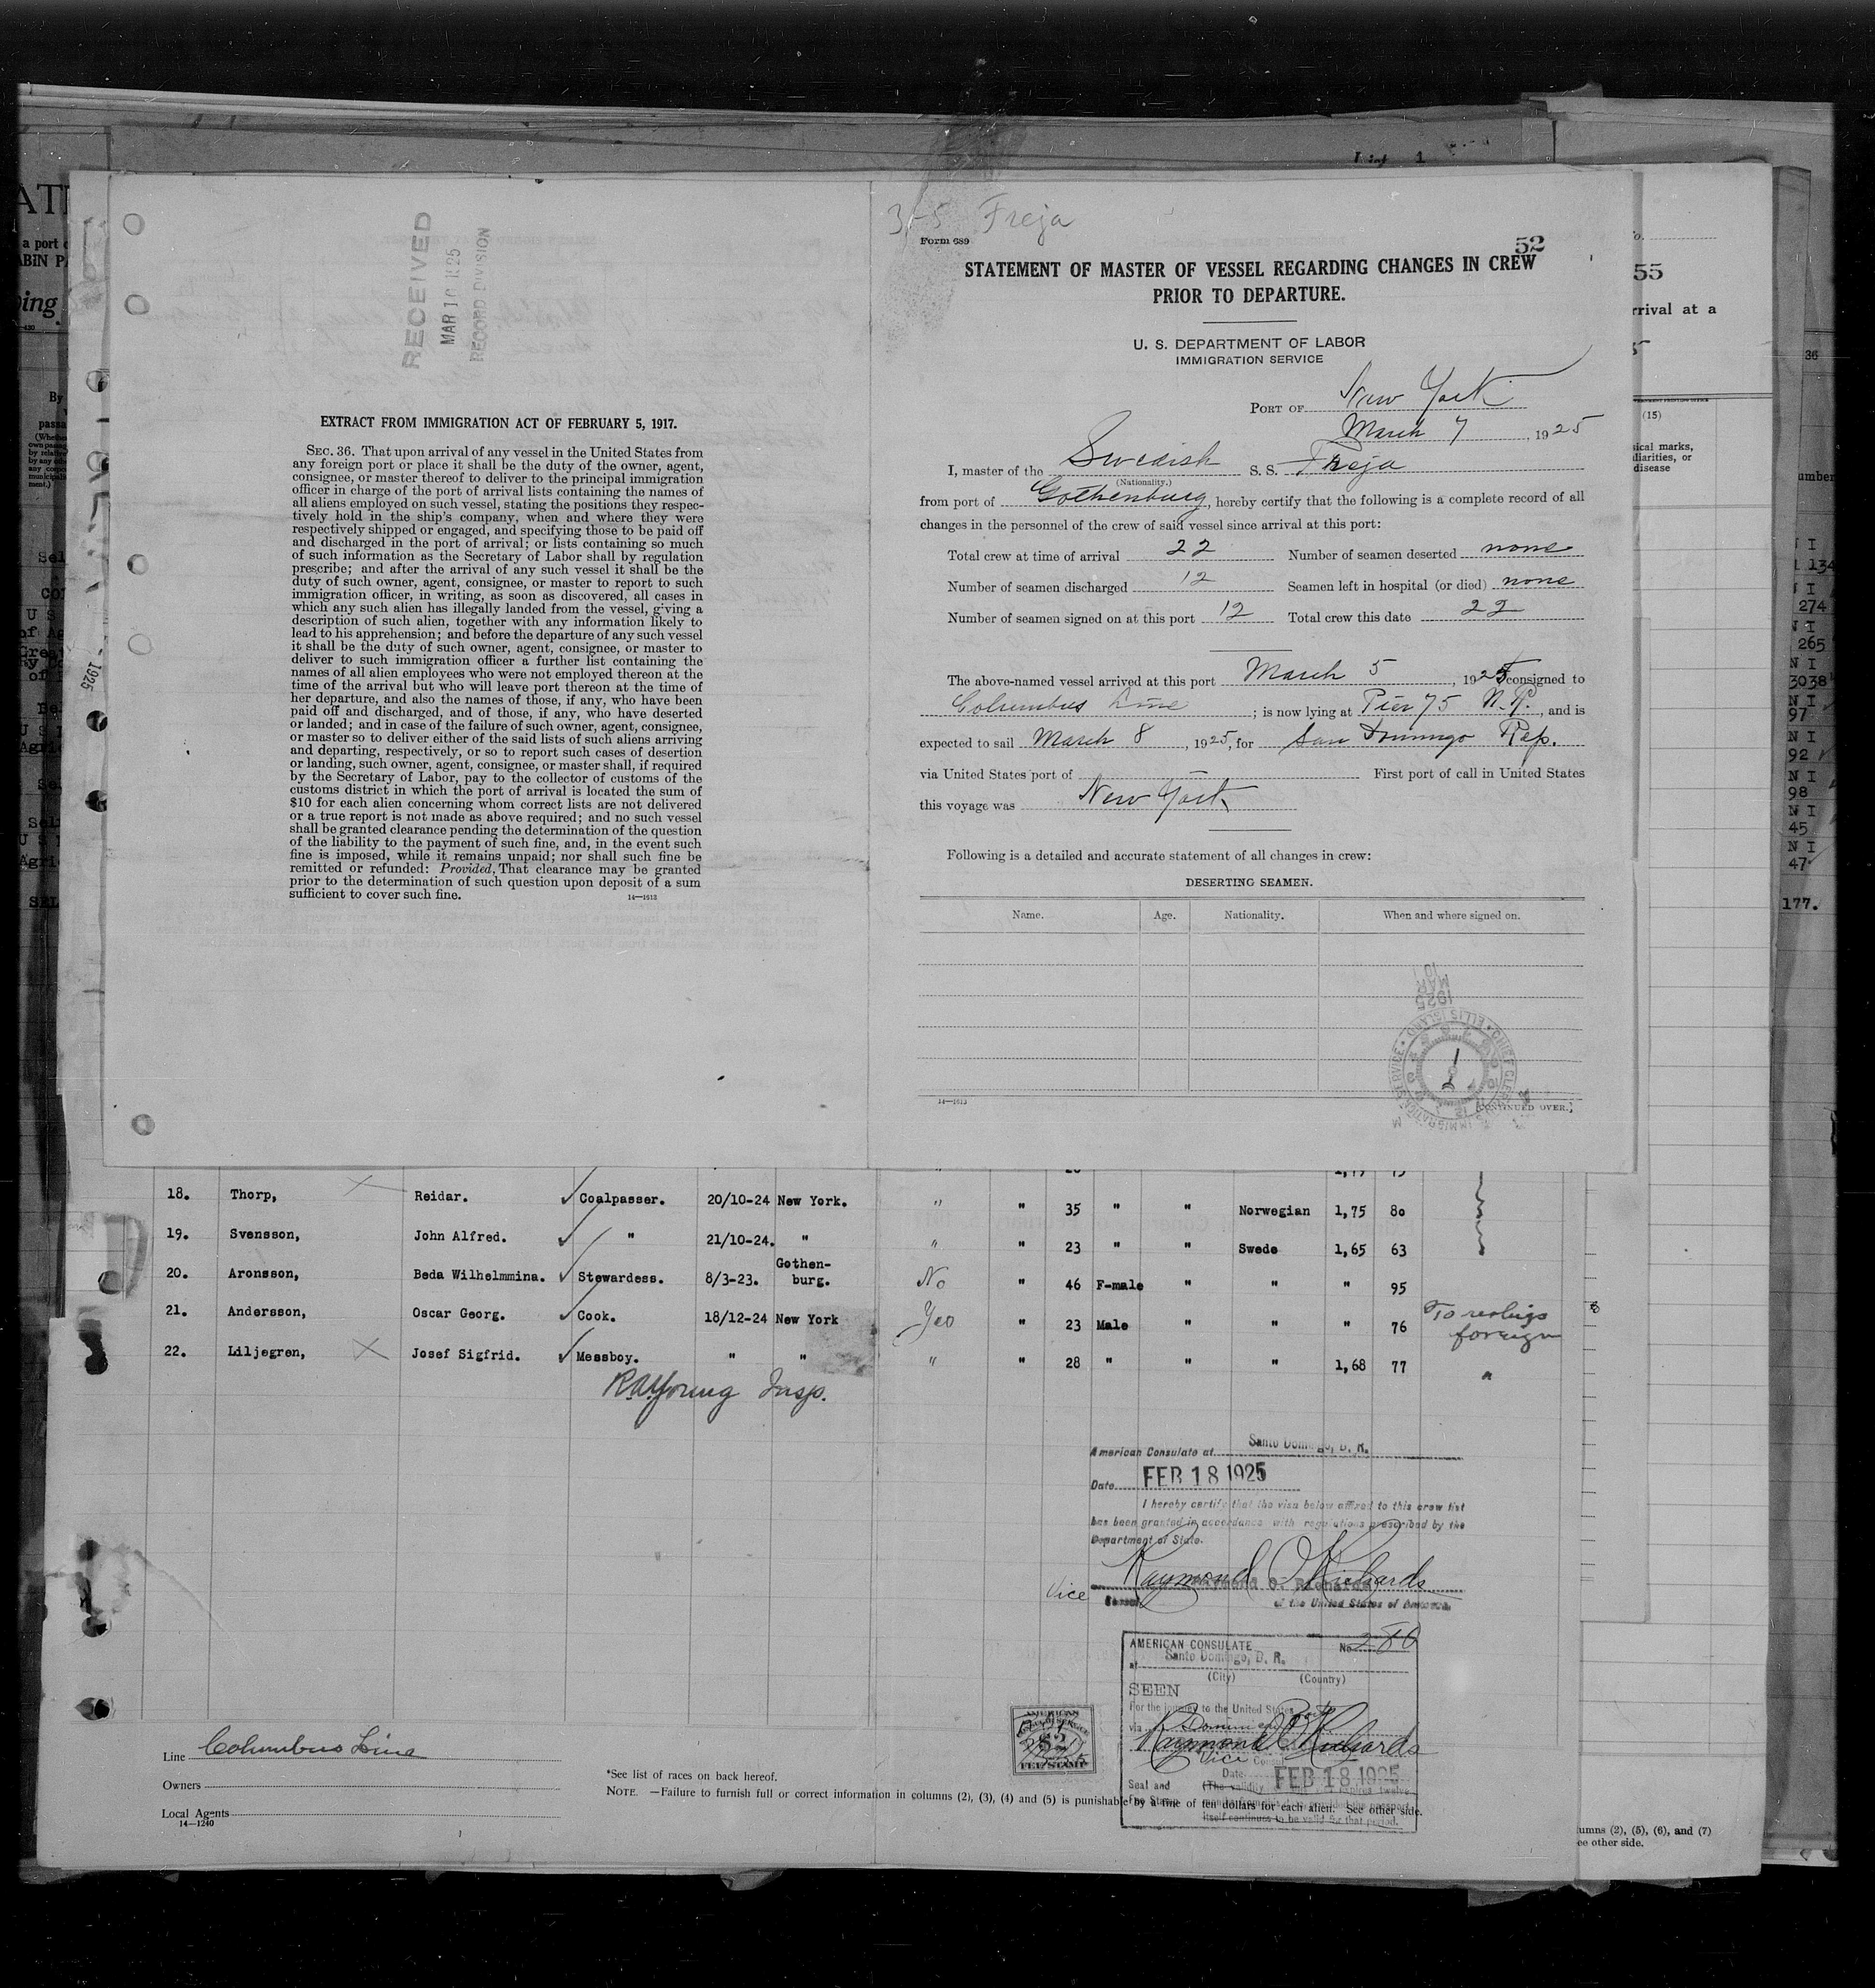 RECEIVED
MAR 10 1925
RECORD DIVISION
EXTRACT FROM IMMIGRATION ACT OF FEBRUARY 5, 1917.
SEC. 36. That upon arrival of any vessel in the United States from
any foreign port or place it shall be the duty of the owner, agent,
consignee, or master thereof to deliver to the principal immigration
officer in charge of the port of arrival lists containing the names of
all aliens employed on such vessel, stating the positions they respec-
tively hold in the ship's company, when and where they were
respectively shipped or engaged, and specifying those to be paid off
and discharged in the port of arrival; or lists containing so much
of such information as the Secretary of Labor shall by regulation
prescribe; and after the arrival of any such vessel it shall be the
duty of such owner, agent, consignee, or master to report to such
immigration officer, in writing, as soon as discovered, all cases in
which any such alien has illegally landed from the vessel, giving a
description of such alien, together with any information likely to
lead to his apprehension; and before the departure of any such vessel
it shall be the duty of such owner, agent, consignee, or master to
deliver to such immigration officer a further list containing the
names of all alien employees who were not employed thereon at the
time of the arrival but who will leave port thereon at the time of
her departure, and also the names of those, if any, who have been
paid off and discharged, and of those, if any, who have deserted
or landed; and in case of the failure of such owner, agent, consignee,
or master so to deliver either of the said lists of such aliens arriving
and departing, respectively, or so to report such cases of desertion
or landing, such owner, agent, consignee, or master shall, if required
by the Secretary of Labor, pay to the collector of customs of the
customs district in which the port of arrival is located the sum of
$10 for each alien concerning whom correct lists are not delivered
or a true report is not made as above required; and no such vessel
shall be granted clearance pending the determination of the question
of the liability to the payment of such fine, and, in the event such
fine is imposed, while it remains unpaid; nor shall such fine be
remitted or refunded: Provided, That clearance may be granted
prior to the determination of such question upon deposit of a sum
sufficient to cover such fine.
14—1613
3/5 Freja
Form 689
52
STATEMENT OF MASTER OF VESSEL REGARDING CHANGES IN CREW
PRIOR TO DEPARTURE.
U. S. DEPARTMENT OF LABOR
IMMIGRATION SERVICE
PORT OF New York
March 7, 1925
I, master of the Swedish S. S. Freja
(Nationality.)
from port of Gothenburg, hereby certify that the following is a complete record of all
changes in the personnel of the crew of said vessel since arrival at this port:
Total crew at time of arrival 22 Number of seamen deserted none
Number of seamen discharged 12 Seamen left in hospital (or died) none
Number of seamen signed on at this port 12 Total crew this date 22
The above-named vessel arrived at this port March 5, 1925 consigned to
Columbus Line; is now lying at Pier 75 N.R., and is
expected to sail March 8, 1925, for San Domingo Rep.
via United States port of — First port of call in United States
this voyage was New York
Following is a detailed and accurate statement of all changes in crew:
DESERTING SEAMEN.
Name. Age. Nationality. When and where signed on.
1925 MAR 10
IMMIGRATION SERVICE • ELLIS ISLAND • CHIEF CLERK
14—1613
[CONTINUED OVER.]
18. Thorp, Reidar. Coalpasser. 20/10-24 New York. " " 35 " " Norwegian 1,75 80
19. Svensson, John Alfred. " 21/10-24. " " " 23 " " Swede 1,65 63
20. Aronsson, Beda Wilhelmmina. Stewardess. 8/3-23. Gothen-burg. No " 46 F-male " " " 95
21. Andersson, Oscar Georg. Cook. 18/12-24 New York Yes " 23 Male " " " 76 To reships foreign
22. Liljegren, Josef Sigfrid. Messboy. " " " " 28 " " " 1,68 77 "
RAYoung Insp.
American Consulate at Santo Domingo, D. R.
Date FEB 18 1925
I hereby certify that the visa below affixed to this crew list
has been granted in accordance with regulations prescribed by the
Department of State.
Raymond O. Richards
Vice Consul of the United States of America.
AMERICAN CONSULATE No. 286
at Santo Domingo, D. R.
(City) (Country)
SEEN
For the journey to the United States
via
Raymond O. Richards
Vice Consul
Date FEB 18 1925
Seal and
Fee Stamp
itself continues to be valid for that period.
AMERICAN
$2
FEE STAMP
Line Columbus Line
Owners
Local Agents
14—1240
*See list of races on back hereof.
NOTE.—Failure to furnish full or correct information in columns (2), (3), (4) and (5) is punishable by a fine of ten dollars for each alien. See other side.
55
rrival at a
(15)
ical marks,
liarities, or
disease
umns (2), (5), (6), and (7)
ee other side.
36
134
274
265
3038
97
92
98
45
47
177.